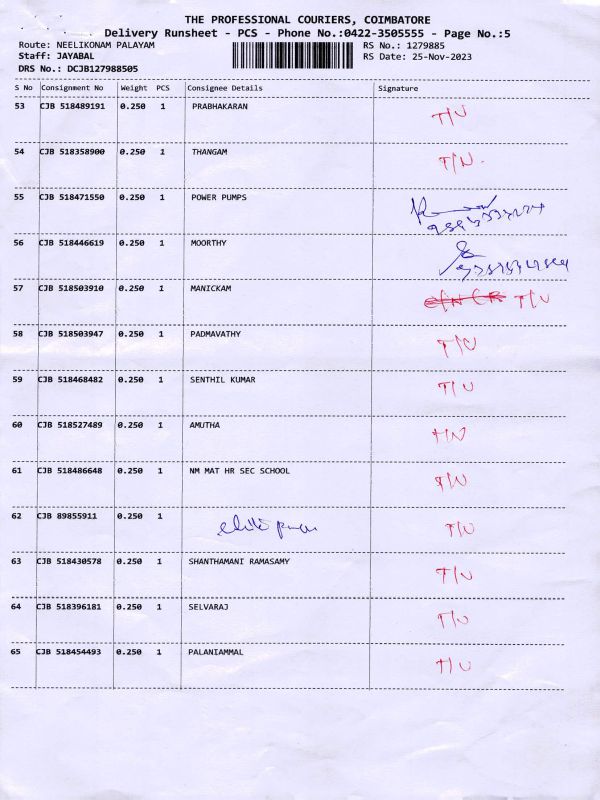 THE PROFESSIONAL COURIERS, COIMBATORE
Delivery Runsheet - PCS - Phone No.:0422-3505555 - Page No.:5
Route: NEELIKONAM PALAYAM RS No.: 1279885
Staff: JAYABAL RS Date: 25-Nov-2023
DRS No.: DCJB127988505
S No Consignment No Weight PCS Consignee Details Signature
53 CJB 518489191 0.250 1 PRABHAKARAN T/U
54 CJB 518358900 0.250 1 THANGAM T/U.
55 CJB 518471550 0.250 1 POWER PUMPS
56 CJB 518446619 0.250 1 MOORTHY
57 CJB 518503910 0.250 1 MANICKAM T/U
58 CJB 518503947 0.250 1 PADMAVATHY T/U
59 CJB 518468482 0.250 1 SENTHIL KUMAR T/U
60 CJB 518527489 0.250 1 AMUTHA T/U
61 CJB 518486648 0.250 1 NM MAT HR SEC SCHOOL T/U
62 CJB 89855911 0.250 1 T/U
63 CJB 518430578 0.250 1 SHANTHAMANI RAMASAMY T/U
64 CJB 518396181 0.250 1 SELVARAJ T/U
65 CJB 518454493 0.250 1 PALANIAMMAL T/U